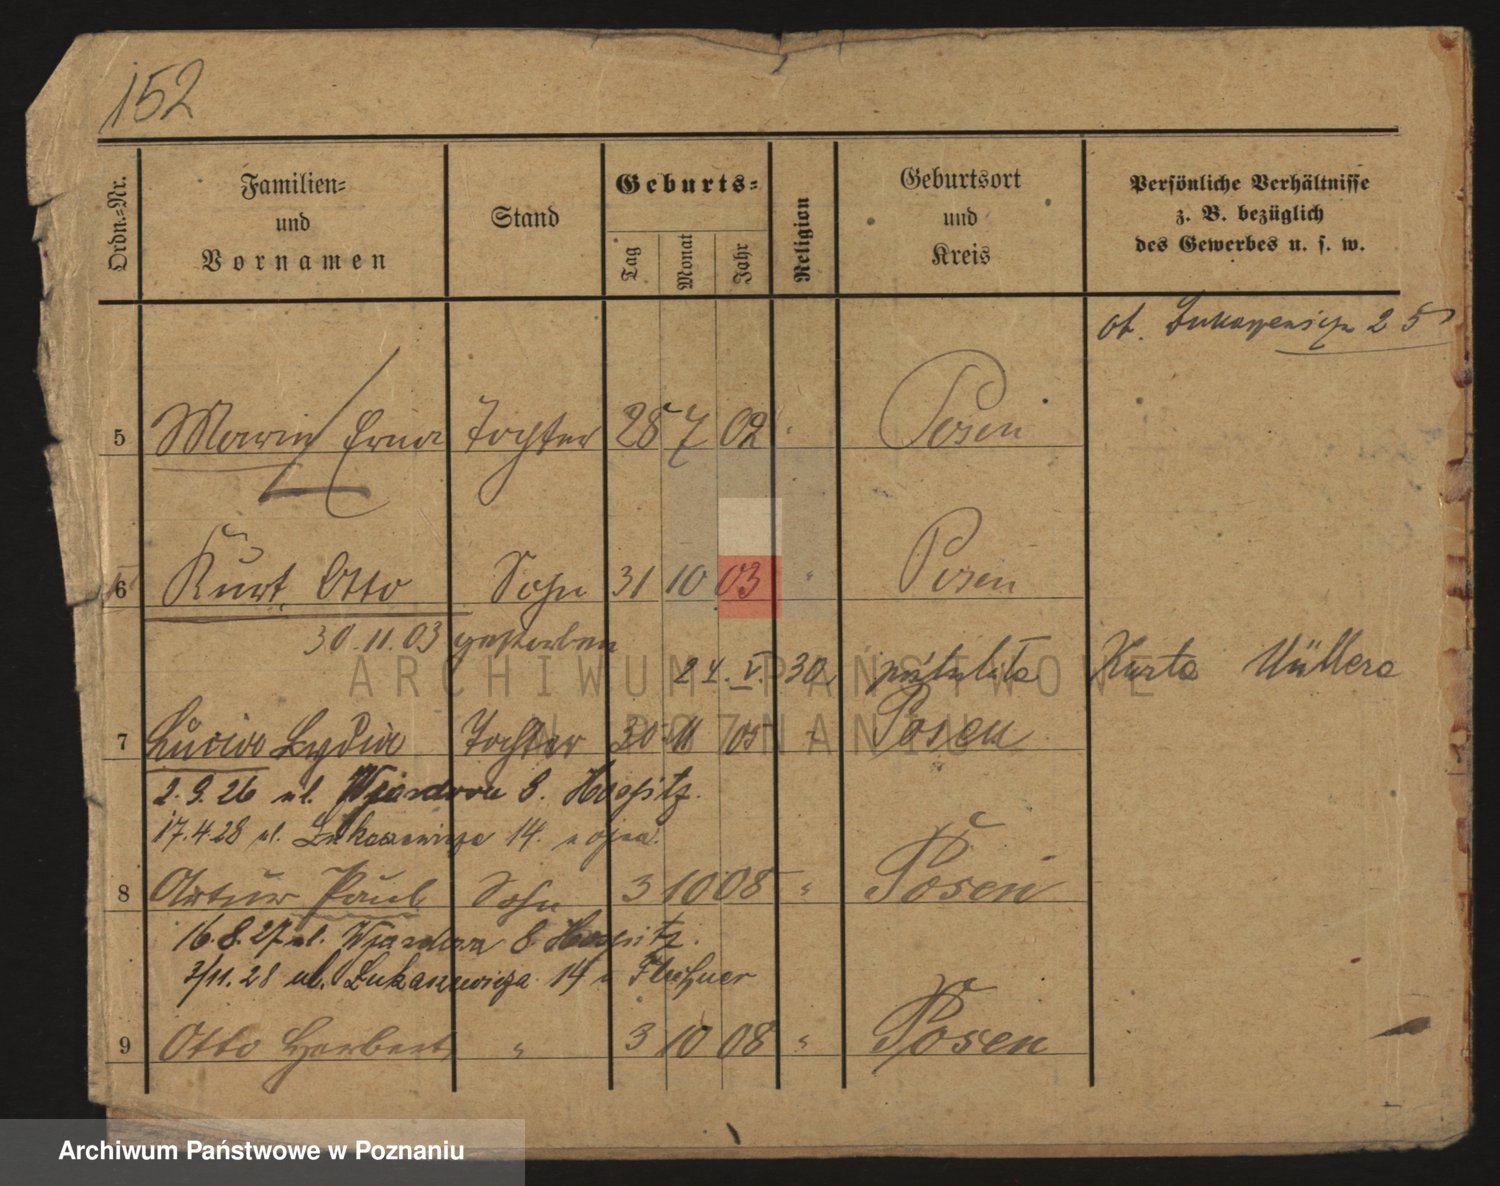 152
Ordn.=Nr.
Familien=
und
Vornamen
Stand
Geburts=
Tag
Monat
Jahr
Religion
Geburtsort
und
Kreis
Persönliche Verhältnisse
z. B. bezüglich
des Gewerbes u. s. w.
25
5 Erna Tochter 28 7 02 Posen
6 Kurt Otto Sohn 31 10 03 " Posen
30.11.03 gestorben
24. V. 30 Kurta Müllera
7 Lucia Lydia Tochter 30 11 05 Posen
2.9.26 ul. Wjazdowa 8. Hospitz.
17.4.28 ul. Łukaszewicza 14.
8 Artur Paul Sohn 3 10 08 " Posen
16.8.27 ul. Wjazdowa 8 Hospitz.
3/11.28 ul. Łukaszewicza 14
9 Otto Herbert " 3 10 08 " Posen
ARCHIWUM PAŃSTWOWE
W POZNANIU
Archiwum Państwowe w Poznaniu